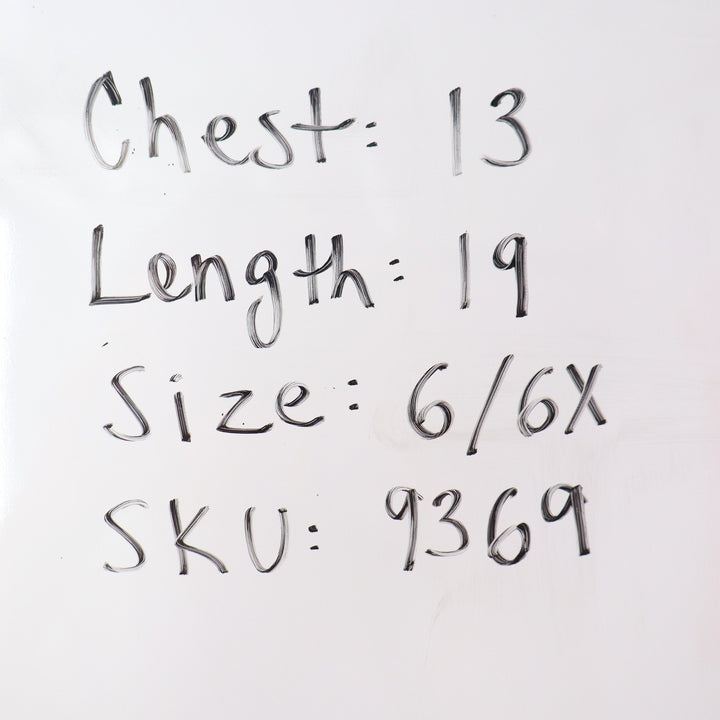 Chest: 13
Length: 19
Size: 6/6X
SKU: 9369